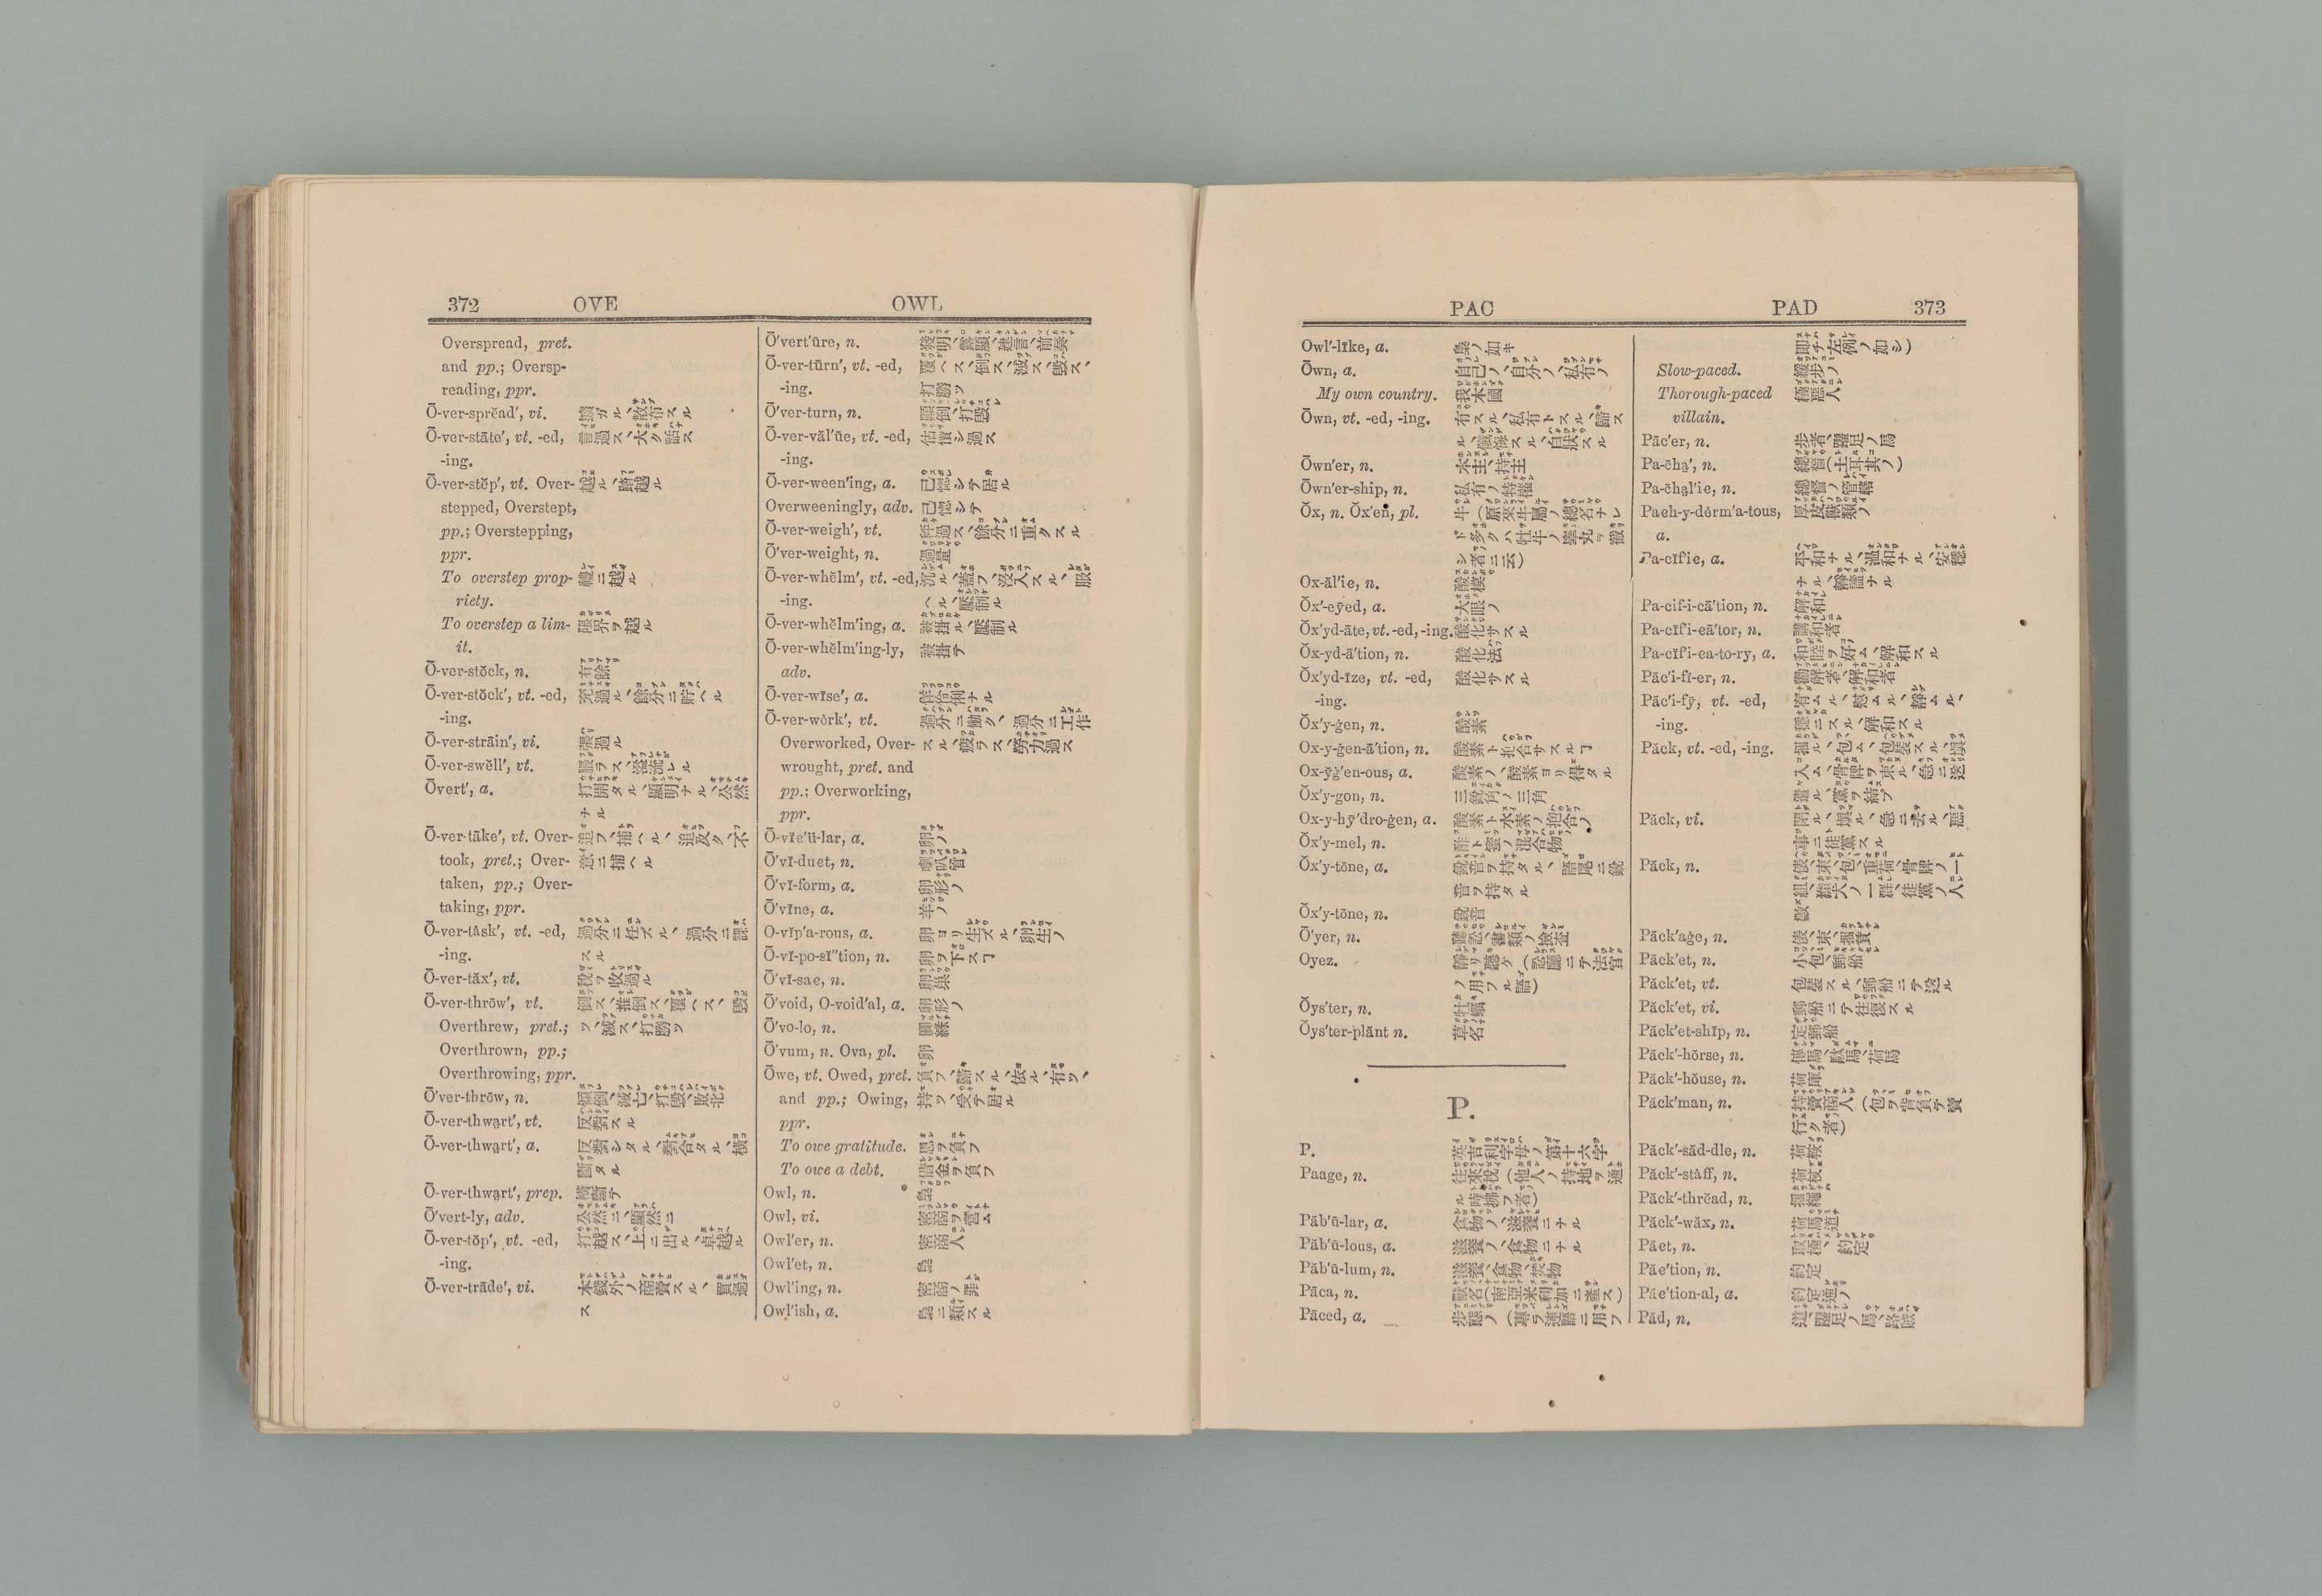 372 OVE OWL
Overspread, pret.
and pp.; Oversp-
reading, ppr.
Ō-ver-sprĕad′, vi. 擴ガル、散布スル
Ō-ver-stāte′, vt. -ed, 言過ス、大ク話ス
-ing.
Ō-ver-stĕp′, vt. Over- 越ル、踰越ル
stepped, Overstept,
pp.; Overstepping,
ppr.
To overstep prop- 禮ニ越ル
riety.
To overstep a lim- 限界ヲ越ル
it.
Ō-ver-stŏck, n. 有餘
Ō-ver-stŏck′, vt. -ed, 充過ル、餘分ニ貯ヘル
-ing.
Ō-ver-strāin′, vi. 張過ル
Ō-ver-swĕll′, vt. 脹ラス、溢流レル
Ōvert′, a. 打開タル、顯明ナル、公然
ナル
Ō-ver-tāke′, vt. Over- 追フ、捕ヘル、追及ク、不
took, pret.; Over- 意ニ捕ヘル
taken, pp.; Over-
taking, ppr.
Ō-ver-tȧsk′, vt. -ed, 過分ニ任ズル、過分ニ課
-ing. スル
Ō-ver-tăx′, vt. 税ヲ收過ル
Ō-ver-thrōw′, vt. 倒ス、推倒ス、覆ヘス、毀
Overthrew, pret.; ツ、滅ス、打勝ツ
Overthrown, pp.;
Overthrowing, ppr.
Ō′ver-thrōw, n. 傾倒、滅亡、打毀、敗北
Ō-ver-thwạrt′, vt. 反對スル
Ō-ver-thwạrt′, a. 反對シタル、對合タル、橫
斷タル
Ō-ver-thwạrt′, prep. 橫斷テ
Ō′vert-ly, adv. 公然ニ、顯然ニ
Ō-ver-tŏp′, vt. -ed, 打越ス、上ニ出ル、卓越ル
-ing.
Ō-ver-trāde′, vi. 本錢外ノ商賣スル、買過
ス
Ō′vert′ūre, n. 發明、露顯、建言、前奏
Ō-ver-tŭrn′, vt. -ed, 覆ヘス、倒ス、滅ス、毀ス、
-ing. 打勝ツ
Ō′ver-turn, n. 顚倒、打毀
Ō-ver-văl′ūe, vt. -ed, 估價シ過ス
-ing.
Ō-ver-ween′ing, a. 己惚シテ居ル
Overweeningly, adv. 己惚シテ
Ō-ver-weigh′, vt. 秤過ス、餘分ニ重クスル
Ō′ver-weight, n. 過量
Ō-ver-whĕlm′, vt. -ed, 沉ル、蓋フ、沒入スル、服
-ing. ヘル、壓制ル
Ō-ver-whĕlm′ing, a. 被掛ル、壓制ル
Ō-ver-whĕlm′ing-ly, 被掛テ
adv.
Ō-ver-wīse′, a. 佯怜悧ナル
Ō-ver-wȯrk′, vt. 過分ニ働ク、過分ニ工作
Overworked, Over- スル、疲ラス、勞力過ス
wrought, pret. and
pp.; Overworking,
ppr.
Ō-vĭe′ū-lar, a. 卵ノ
Ō′vĭ-duet, n. 喇叭管
Ō′vĭ-form, a. 卵形ノ
Ō′vīne, a. 羊ノ
O-vĭp′a-rous, a. 卵ヨリ生ズル、卵生ノ
Ō-vĭ-po-sĭ″tion, n. 卵ヲ下スヿ
Ō′vĭ-sae, n. 卵巢
Ō′void, O-void′al, a. 卵形ノ
Ō′vo-lo, n. 圓緣
Ō′vum, n. Ova, pl. 卵
Ōwe, vt. Owed, pret. 負フ、歸スル、依ル、有ツ、
and pp.; Owing, 持ツ、受テ居ル
ppr.
To owe gratitude. 恩ヲ負フ
To owe a debt. 借金ヲ負フ
Owl, n. 梟
Owl, vi. 密商ヲ營ム
Owl′er, n. 密商人
Owl′et, n. 梟
Owl′ing, n. 密商ノ罪
Owl′ish, a. 梟ニ類スル
PAC PAD 373
Owl′-līke, a. 梟ノ如キ
Ōwn, a. 自己ノ、自分ノ、私有ノ
My own country. 我本國
Ōwn, vt. -ed, -ing. 有スル、私有トスル、歸ス
ル、懺悔スル、自狀スル
Ōwn′er, n. 本主、持主
Ōwn′er-ship, n. 私有ノ特權
Ŏx, n. Ŏx′en, pl. 牛(原來牛屬ノ總名ナレ
ド多クハ牡牛ノ睾丸ヲ徹
スシ者ニ云)
Ox-ăl′ie, n. 酸模
Ŏx′-eȳed, a. 大眼ノ
Ŏx′yd-āte, vt.-ed,-ing. 酸化サスル
Ŏx-yd-ā′tion, n. 酸化法
Ŏx′yd-īze, vt. -ed, 酸化サスル
-ing.
Ŏx′y-ġen, n. 酸素
Ox-y-ġen-ā′tion, n. 酸素ト抱合サスルヿ
Ox-y̆ġ′en-ous, a. 酸素ノ、酸素ヨリ得タル
Ŏx′y-gon, n. 三銳角ノ三角
Ox-y-hȳ′dro-ġen, a. 酸素ト水素ノ抱合ノ
Ŏx′y-mel, n. 酢ト蜜ノ混合物
Ŏx′y-tōne, a. 銳音ヲ持タル、語尾ニ銳
音ヲ持タル
Ŏx′y-tōne, n. 銳音
Ō′yer, n. 聽訟、書類ノ撿査
Oyez. 靜リ聽ケ(訟廳ニテ法官
ノ用フル語)
Ŏys′ter, n. 牡蠣
Ŏys′ter-plănt n. 草名
P.
P. 英吉利字母ノ第十六字
Paage, n. 往來稅(他人ノ持地ヲ通
ル時拂フ者)
Păb′ū-lar, a. 食物ノ、滋養ニナル
Păb′ū-lous, a. 滋養ノ、食物ニナル
Păb′ū-lum, n. 滋養、食物、焚物
Pāca, n. 獸名(南亞米利加ニ產ス)
Pāced, a. 步態ノ(專ラ連語ニ用フ
即チ左例ノ如シ)
Slow-paced. 緩步ノ
Thorough-paced 極惡人
villain.
Pāc′er, n. 步者、躍足ノ馬
Pa-çhạ′, n. 總督(土耳其ノ)
Pa-çhạl′ie, n. 總督ノ管轄
Paeh-y-dẽrm′a-tous, 厚皮獸類ノ
a.
Pa-cĭf′ie, a. 平和ナル、溫和ナル、安穩
ナル、靜謐ナル
Pa-cif-i-cā′tion, n. 解和
Pa-cĭf′i-eā′tor, n. 講和者
Pa-cĭf′i-ea-to-ry, a. 和睦ヲ好ム、解和スル
Păc′i-fī-er, n. 勸解者、解和者
Păc′i-fȳ, vt. -ed, 宥ムル、慰ムル、靜ムル、
-ing. 穩ニスル、解和スル
Păck, vt. -ed, -ing. 摑ル、包ム、包裝スル、塡
入ム、骨牌ヲ束ル、急ニ送
遣ル、黨ヲ結ブ
Păck, vi. 閉ル、塡ル、急ニ去ル、惡
事ニ徒黨スル
Păck, n. 俵、束、包、重荷、骨牌ノ一
組、獵犬ノ一群、徒黨ノ人
數
Păck′aġe, n. 俵、束、摑賃
Păck′et, n. 小包、郵船
Păck′et, vt. 包裝スル、郵船ニテ送ル
Păck′et, vi. 郵船ニテ往復スル
Păck′et-shĭp, n. 定郵船
Păck′-hŏrse, n. 傭馬、馱馬、荷馬
Păck′-hŏuse, n. 荷庫
Păck′man, n. 持賣商人(包ヲ背負テ賣
行ク者)
Păck′-săd-dle, n. 荷鞍
Păck′-stȧff, n. 荷杖
Păck′-thrĕad, n. 摑繩
Păck′-wăx, n. 荷馬道
Păet, n. 取極、約定
Păe′tion, n. 約定
Păe′tion-al, a. 約定通ノ
Păd, n. 道、躍足ノ馬、路賊